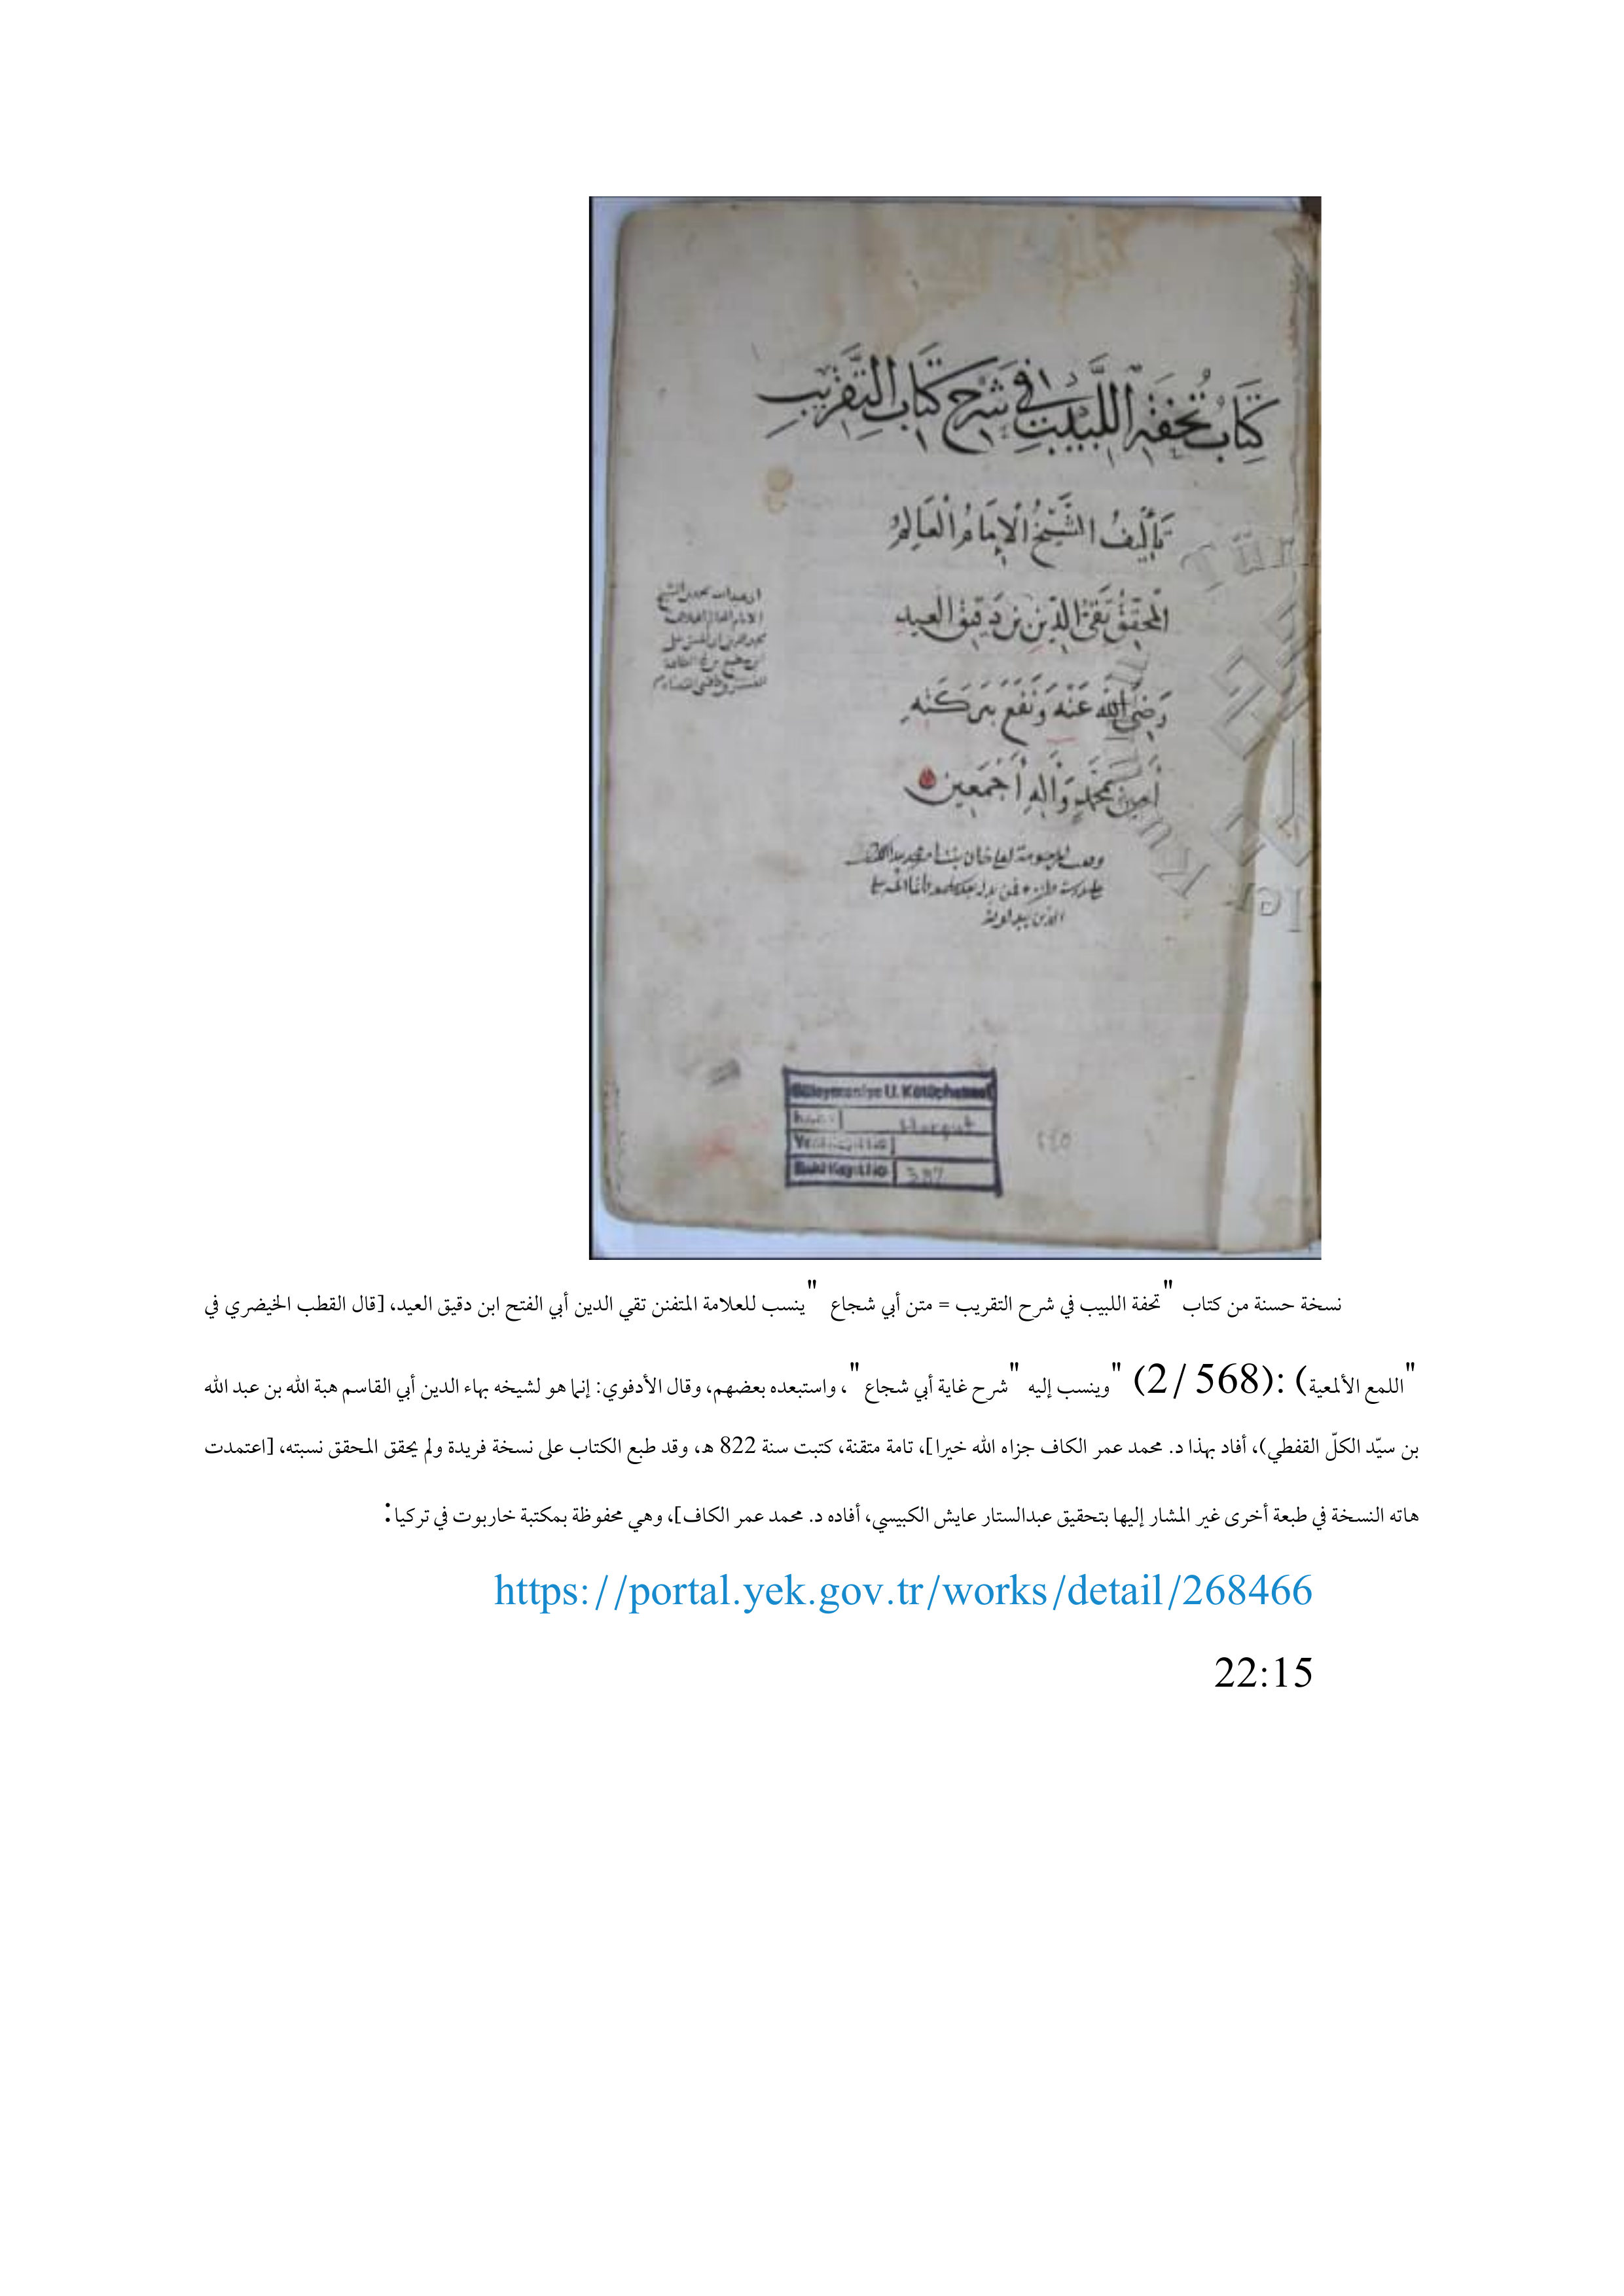 كِتَابُ تُحْفَةِ اللَّبِيْبِ فِي شَرْحِ كِتَابِ التَّقْرِيْبِ
تَأْلِيفُ الشَّيْخُ الْإِمَامُ الْعَالِمُ
الْمُحَقِّقُ تَقِيُّ الدِّينِ بْنِ دَقِيقِ الْعِيدِ
رَضِيَ اللهُ عَنْهُ وَنَفَعَ بِبَرَكَتِهِ
أمين بمُحَمَّدٍ وَآلِهِ أَجْمَعِينَ
Süleymaniye U. Kütüphanesi
Harput
Eski Kayıt No 387
نسخة حسنة من كتاب "تحفة اللبيب في شرح التقريب = متن أبي شجاع "ينسب للعلامة المتفنن تقي الدين أبي الفتح ابن دقيق العيد، [قال القطب الخيضري في
"اللمع الألمعية) :(568 /2) "وينسب إليه "شرح غاية أبي شجاع"، واستبعده بعضهم، وقال الأدفوي: إنما هو لشيخه بهاء الدين أبي القاسم هبة الله بن عبد الله
بن سيّد الكلّ القفطي)، أفاد بهذا د. محمد عمر الكاف جزاه الله خيرا]، تامة متقنة، كتبت سنة 822 هـ، وقد طبع الكتاب على نسخة فريدة ولم يحقق المحقق نسبته، [اعتمدت
هاته النسخة في طبعة أخرى غير المشار إليها بتحقيق عبدالستار عايش الكبيسي، أفاده د. محمد عمر الكاف]، وهي محفوظة بمكتبة خاربوت في تركيا:
https://portal.yek.gov.tr/works/detail/268466
22:15